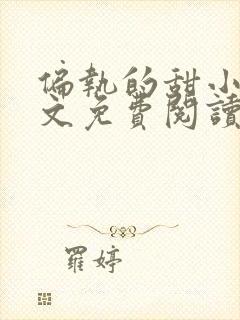 偏執的甜小
文免費閱讀
羅婷